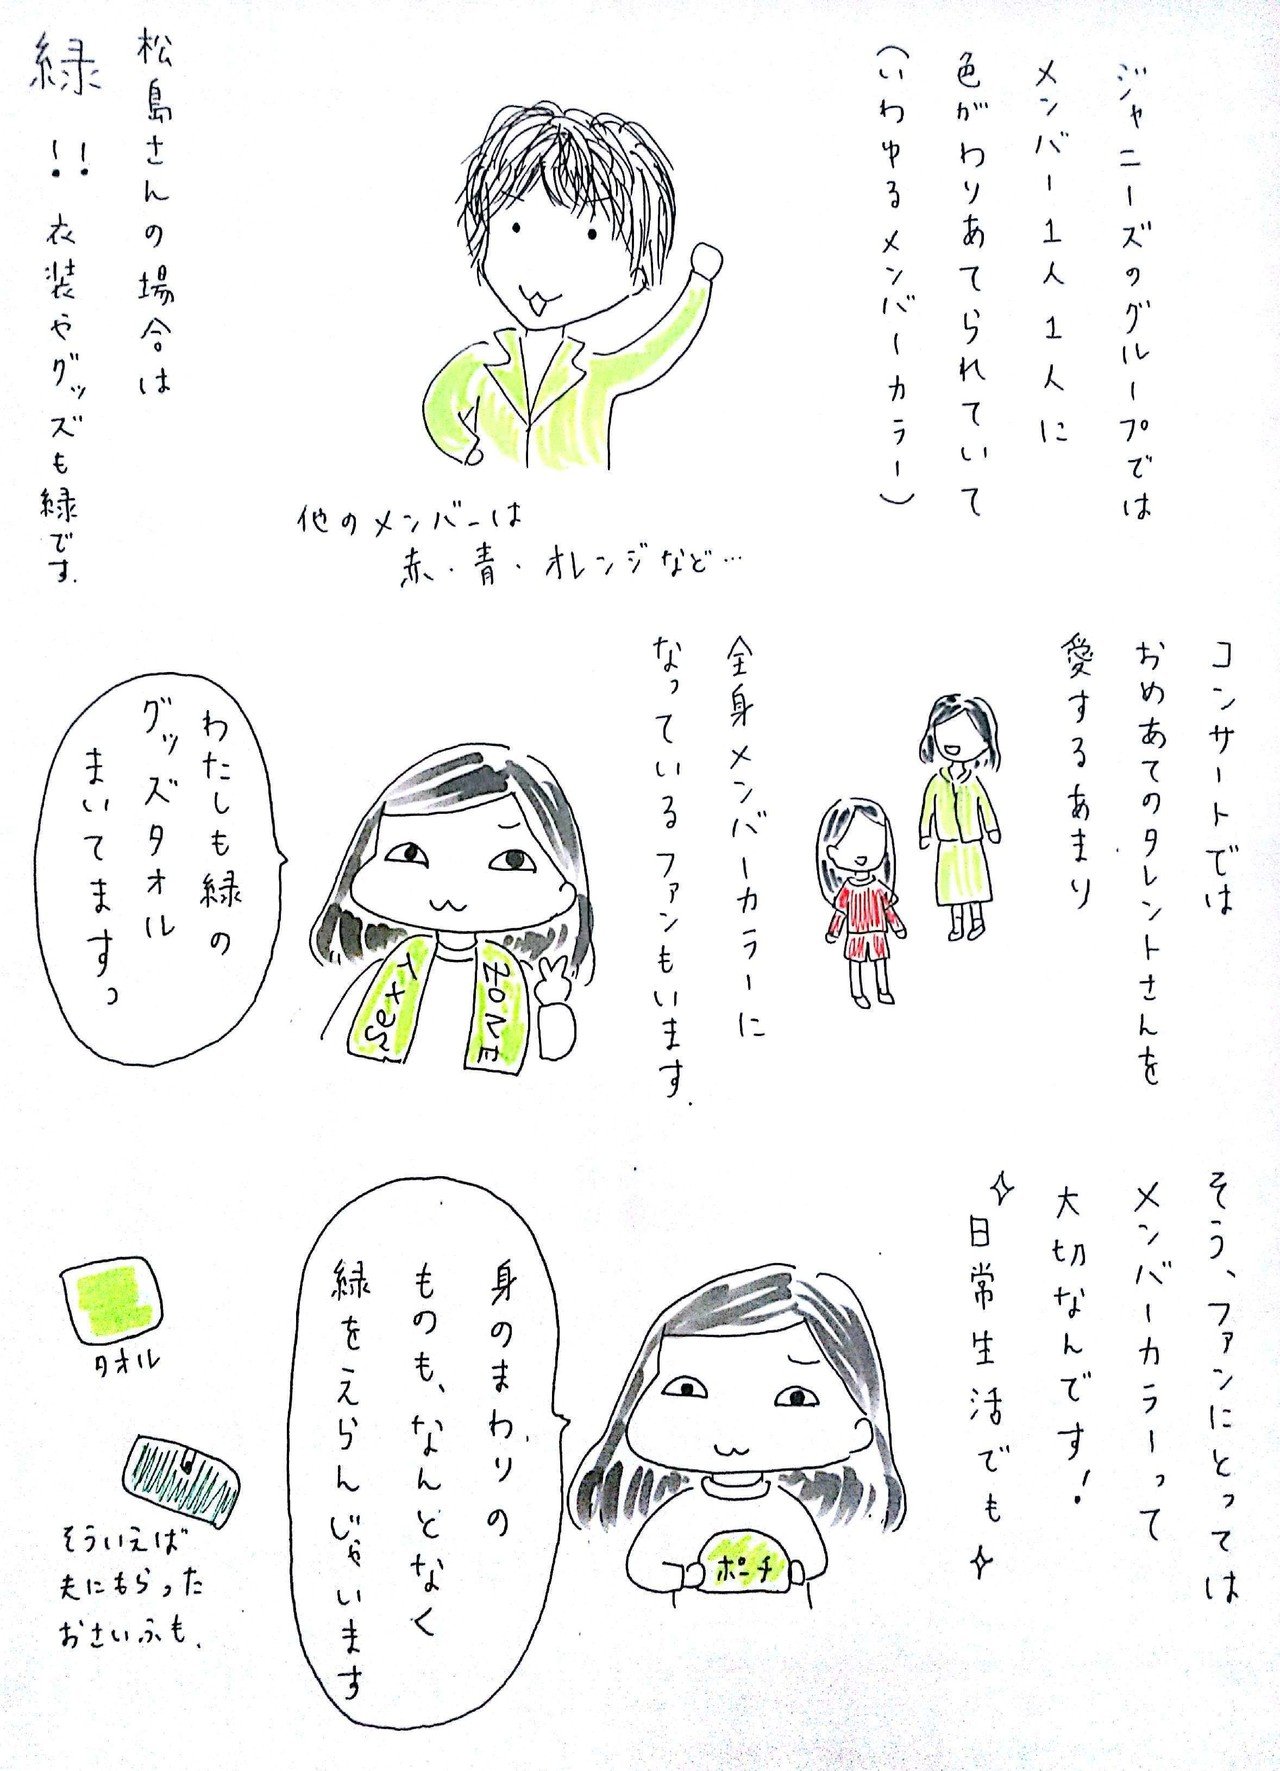 ジャニーズのグループでは
メンバー1人1人に
色がわりあてられていて
(いわゆるメンバーカラー)
他のメンバーは
赤・青・オレンジなど…
松島さんの場合は
緑!!衣装やグッズも緑です.
コンサートでは
おめあてのタレントさんを
愛するあまり
全身メンバーカラーに
なっているファンもいます.
わたしも緑の
グッズタオル
まいてますっ
ZONE
そう、ファンにとっては
メンバーカラーって
大切なんです!
日常生活でも
ポーチ
身のまわりの
ものも、なんとなく
緑をえらんじゃいます
タオル
そういえば
夫にもらった
おさいふも、